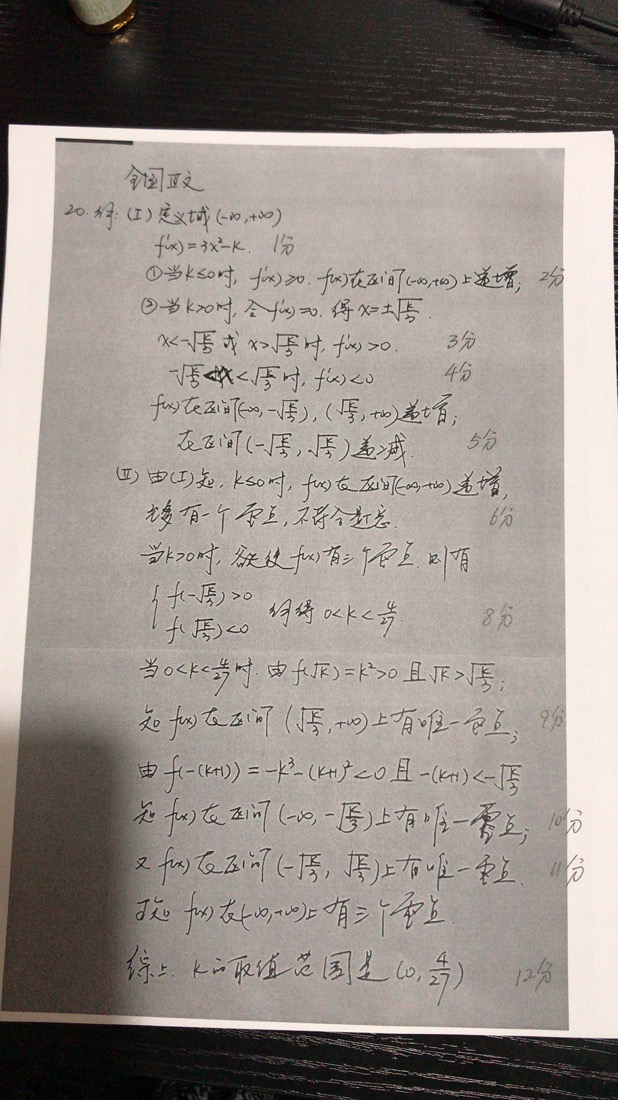 全国Ⅲ文
20. 解: (Ⅰ) 定义域(-∞,+∞)
f'(x)=3x²-k. 1分
①当k≤0时, f'(x)≥0. f(x)在区间(-∞,+∞)上递增; 2分
②当k>0时, 令f'(x)=0. 得x=±√(k/3).
x<-√(k/3) 或 x>√(k/3)时, f'(x)>0. 3分
-√(k/3)<x<√(k/3)时, f'(x)<0 4分
f(x)在区间(-∞,-√(k/3)), (√(k/3),+∞)递增;
在区间(-√(k/3), √(k/3))递减. 5分
(Ⅱ) 由(Ⅰ)知, k≤0时, f(x)在区间(-∞,+∞)递增,
有一个零点, 不符合题意. 6分
当k>0时, 欲使f(x)有三个零点. 则有
{ f(-√(k/3))>0
f(√(k/3))<0 解得 0<k<4/27. 8分
当0<k<4/27时. 由f(√k)=k²>0 且√k>√(k/3);
知f(x)在区间(√(k/3),+∞)上有唯一零点; 9分
由f(-(k+1))=-k³-(k+1)²<0 且-(k+1)<-√(k/3)
知f(x)在区间(-∞,-√(k/3))上有唯一零点; 10分
又f(x)在区间(-√(k/3), √(k/3))上有唯一零点. 11分
可知 f(x)在(-∞,+∞)上有三个零点.
综上. k的取值范围是(0, 4/27) 12分